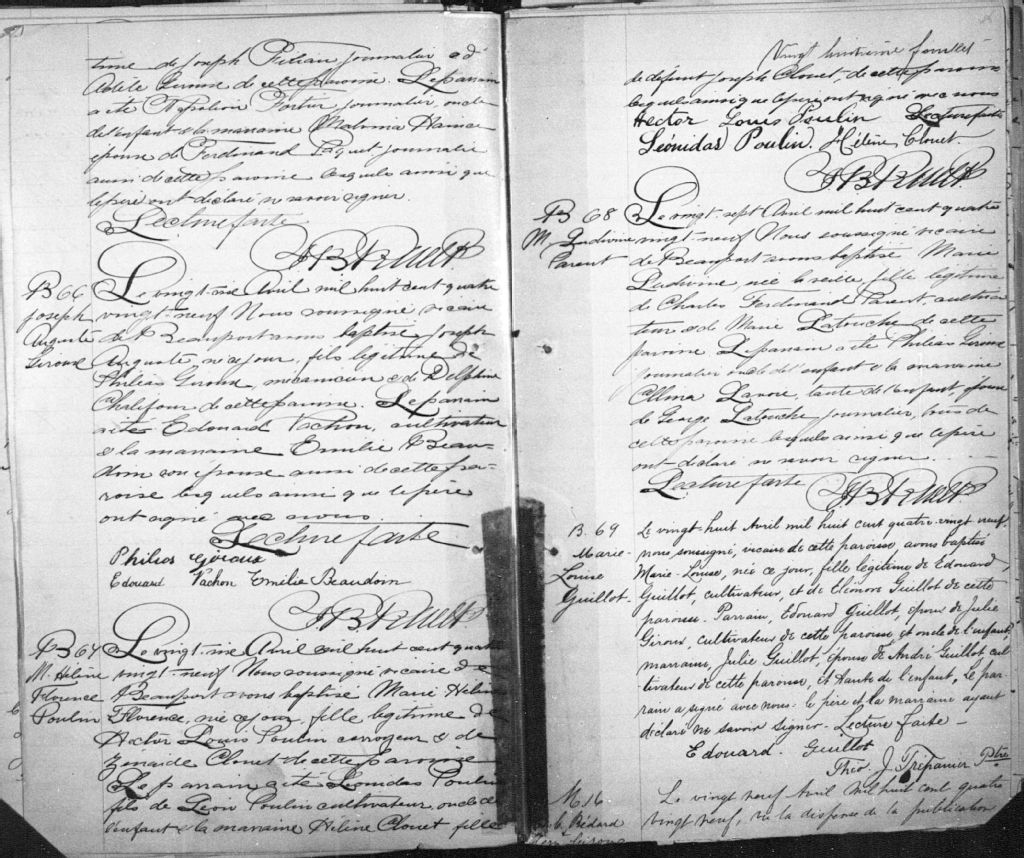 time de Joseph journalier et
Adèle Giroux de cette paroisse. Le parrain
a été Napoléon Fortier journalier, oncle
de l'enfant & la marraine Malvina
épouse de Ferdinand Paquet journalier
aussi de cette paroisse lesquels ainsi que
le père ont déclaré ne savoir signer.
Lecture faite
B 66
Joseph
Auguste
Giroux
Le vingt-six Avril mil huit cent quatre
vingt-neuf Nous soussigné vicaire
de Beauport avons baptisé Joseph
Auguste, né ce jour, fils légitime de
Philias Giroux, mécanicien & de Delphine
Chalifour de cette paroisse. Le parrain
a été Edouard Vachon, cultivateur
& la marraine Emilie Beau-
doin son épouse aussi de cette pa-
roisse lesquels ainsi que le père
ont signé avec nous.
Lecture faite
Philias Giroux
Edouard Vachon Emélie Beaudoin
B 67
M. Hélène
Florence
Poulin
Le vingt-six Avril mil huit cent quatre
vingt-neuf Nous soussigné vicaire de
Beauport avons baptisé Marie Hélène
Florence, née ce jour, fille légitime de
Hector Louis Poulin & de
Zénaïde Clouet de cette paroisse
Le parrain a été Léonidas Poulin
fils de Léon Poulin cultivateur, oncle de
l'enfant & la marraine Hélène Clouet fille
Vingt huitième feuillet
de défunt Joseph Clouet de cette paroisse
lesquels ainsi que le père ont signé avec nous
Hector Louis Poulin Lecture faite
Léonidas Poulin. Hélène Clouet.
B 68
M. Ludivine
Parent
Le vingt-sept Avril mil huit cent quatre
vingt-neuf Nous soussigné vicaire
de Beauport avons baptisé Marie
Ludivine, née la veille, fille légitime
de Charles Ferdinand Parent, cultiva-
teur & de Marie Latouche de cette
paroisse. Le parrain a été Philias Giroux
journalier oncle de l'enfant & la marraine
tante de l'enfant, épouse
de George Latouche journalier, tous de
cette paroisse lesquels ainsi que le père
ont déclaré ne savoir signer.
Lecture faite
B. 69
Marie-
Louise
Guillot-
Le vingt-huit Avril mil huit cent quatre-vingt neuf,
nous, soussigné, vicaire de cette paroisse, avons baptisé
Marie-Louise, née ce jour, fille légitime de Edouard
Guillot, cultivateur, et de Eléonore Guillot de cette
paroisse. Parrain, Edouard Guillot, époux de Julie
Giroux, cultivateur de cette paroisse, et oncle de l'enfant,
marraine, Julie Guillot, épouse de André Guillot cul-
tivateur de cette paroisse, et tante de l'enfant, le par-
rain a signé avec nous. le père et la marraine ayant
déclaré ne savoir signer. Lecture faite -
Edouard Guillot
Théo. J. Trépanier Ptre
M. 16
Bédard
Le vingt neuf Avril mil huit cent quatre
vingt neuf, vu la dispense de la publication